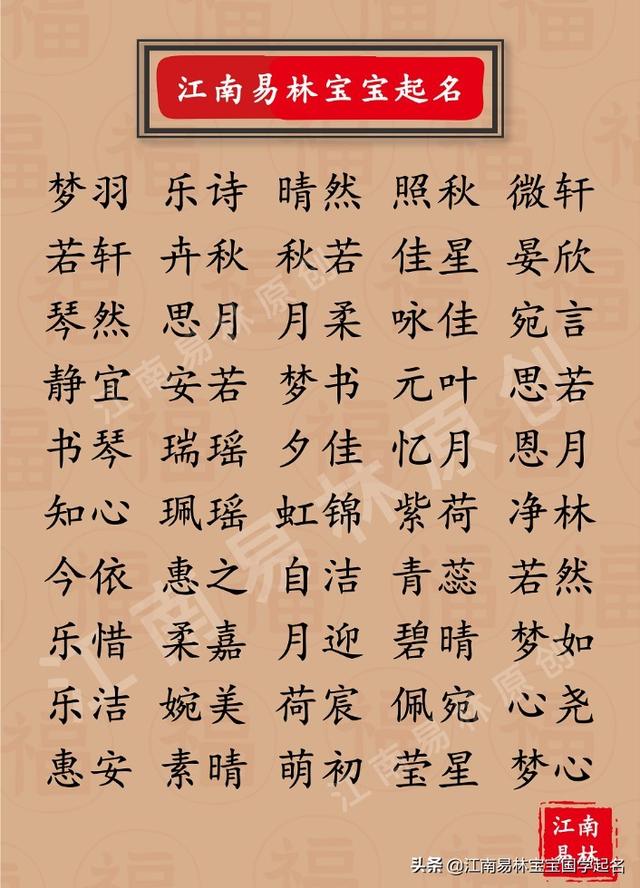 江南易林宝宝起名
梦羽 乐诗 晴然 照秋 微轩
若轩 卉秋 秋若 佳星 晏欣
琴然 思月 月柔 咏佳 宛言
静宜 安若 梦书 元叶 思若
书琴 瑞瑶 夕佳 忆月 恩月
知心 珮瑶 虹锦 紫荷 净林
今依 惠之 自洁 青蕊 若然
乐惜 柔嘉 月迎 碧晴 梦如
乐洁 婉美 荷宸 佩宛 心尧
惠安 素晴 萌初 莹星 梦心
江南易林原创
江南易林原创
江南易林原创
江南
易林
头条 @江南易林宝宝国学起名